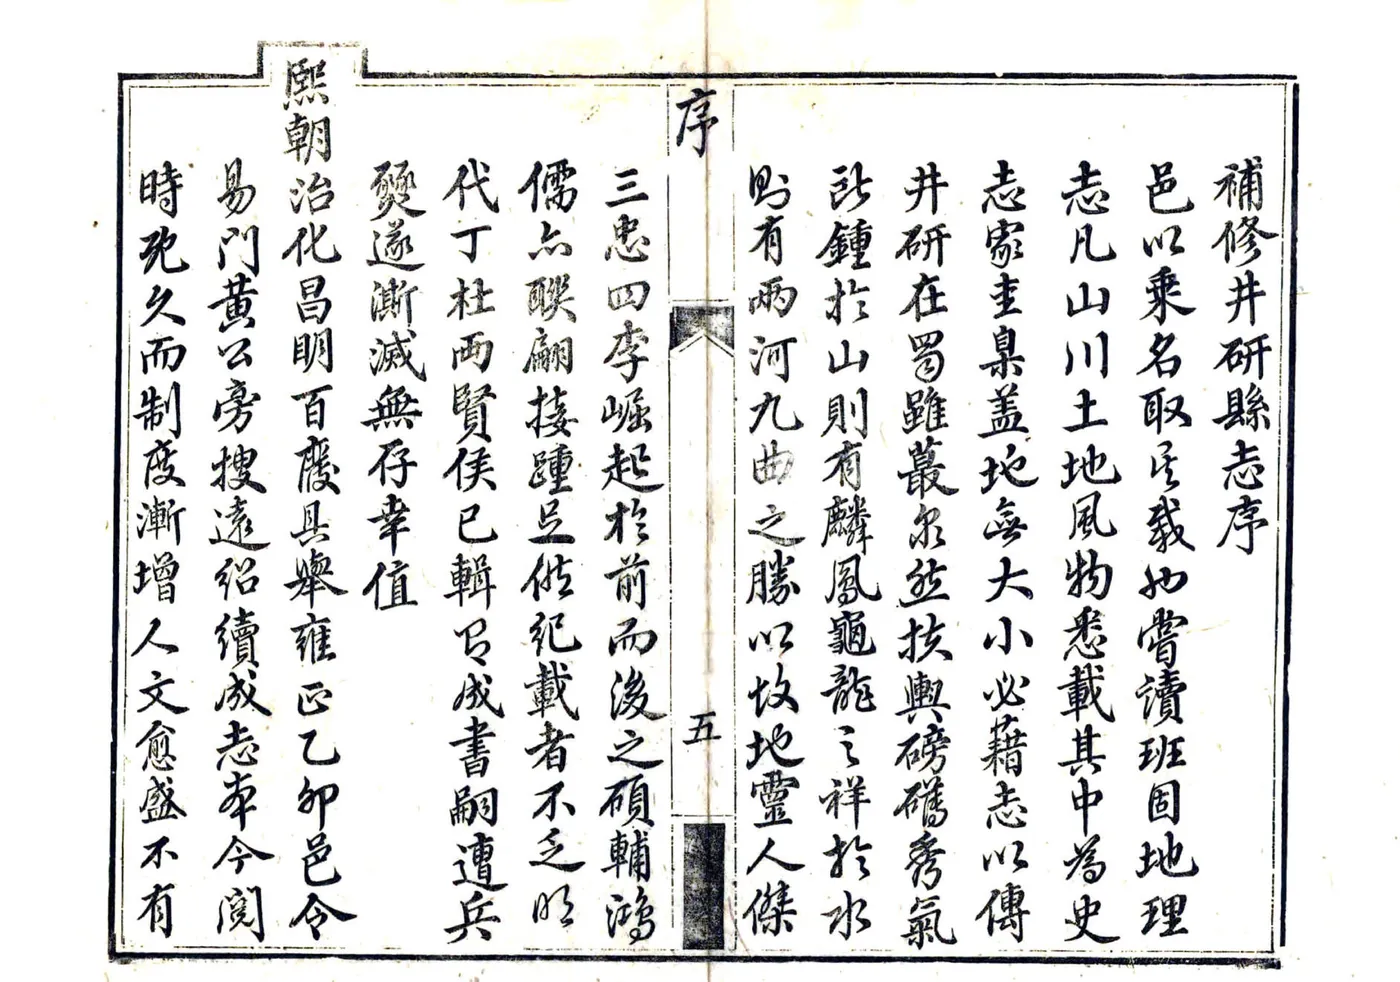 補修井研縣志序
邑以乘名取其載也嘗讀班固地理
志凡山川土地風物悉載其中為史
志家圭臬蓋地無大小必藉志以傳
井研在蜀雖蕞尔然扶輿磅礴秀氣
所鍾於山則有麟鳳龜龍之祥於水
則有兩河九曲之勝以故地靈人傑
序
五
三忠四李崛起於前而後之碩輔鴻
儒亦聯翩接踵足供紀載者不乏明
代丁杜兩賢侯已輯有成書嗣遭兵
燹遂漸滅無存幸值
熙朝治化昌明百廢具舉雍正乙卯邑令
易門黃公旁搜遠紹續成志本今閱
時既久而制度漸增人文愈盛不有